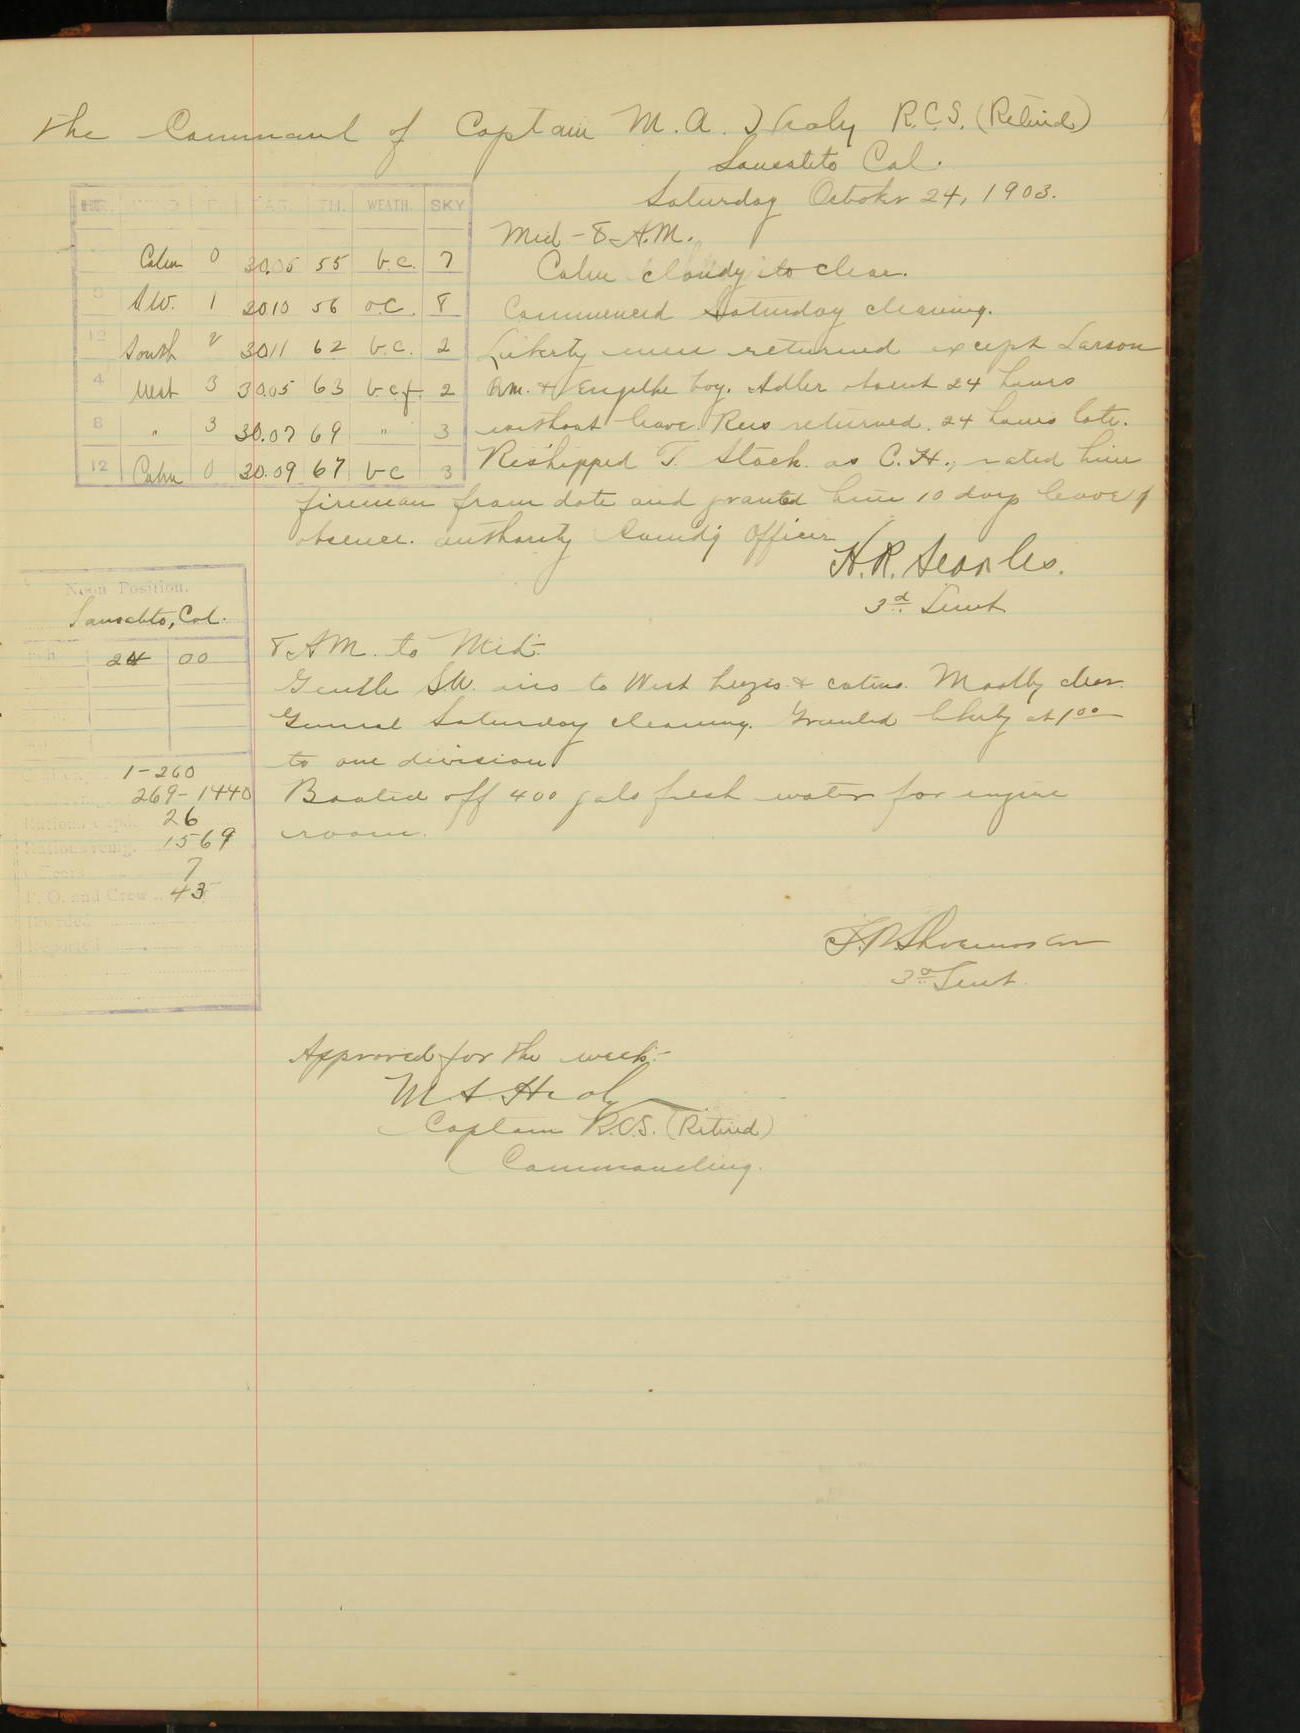 The Command of Captain M. A. Healy R.C.S. (Retired)
Sausalito Cal.
Saturday October 24, 1903.
HR. WIND F. BAR. TH. WEATH. SKY
4 Calm 0 30.05 55 b.c. 7
8 SW. 1 30.10 56 o.c. 8
12 South 2 30.11 62 b.c. 2
4 West 3 30.05 63 b.c.f. 2
8 " 3 30.07 69 " 3
12 Calm 0 30.09 67 b c 3
Mid - 8 A.M.
Calm cloudy to clear.
Commenced Saturday cleaning.
Liberty men returned except Larson
& boy. Adler absent 24 hours
without leave. returned 24 hours late.
Reshipped T. Stack as C.H., rated him
fireman from date and granted him 10 days leave of
absence. authority Comdg Officer
H. R. Searles.
3d Lieut
Noon Position.
Sausalito, Cal.
24 00
8 AM. to Mid.
Gentle S.W. airs to West & calms. Mostly clear.
General Saturday cleaning. Granted liberty at 1 00
to one division
Boated off 400 gals fresh water for engine
room.
1-260
269-1440
26
Rations 1569
Officers 7
P. O. and Crew 43
3d Lieut.
Approved for the week.
M A Healy
Captain R.C.S. (Retired)
Commanding.